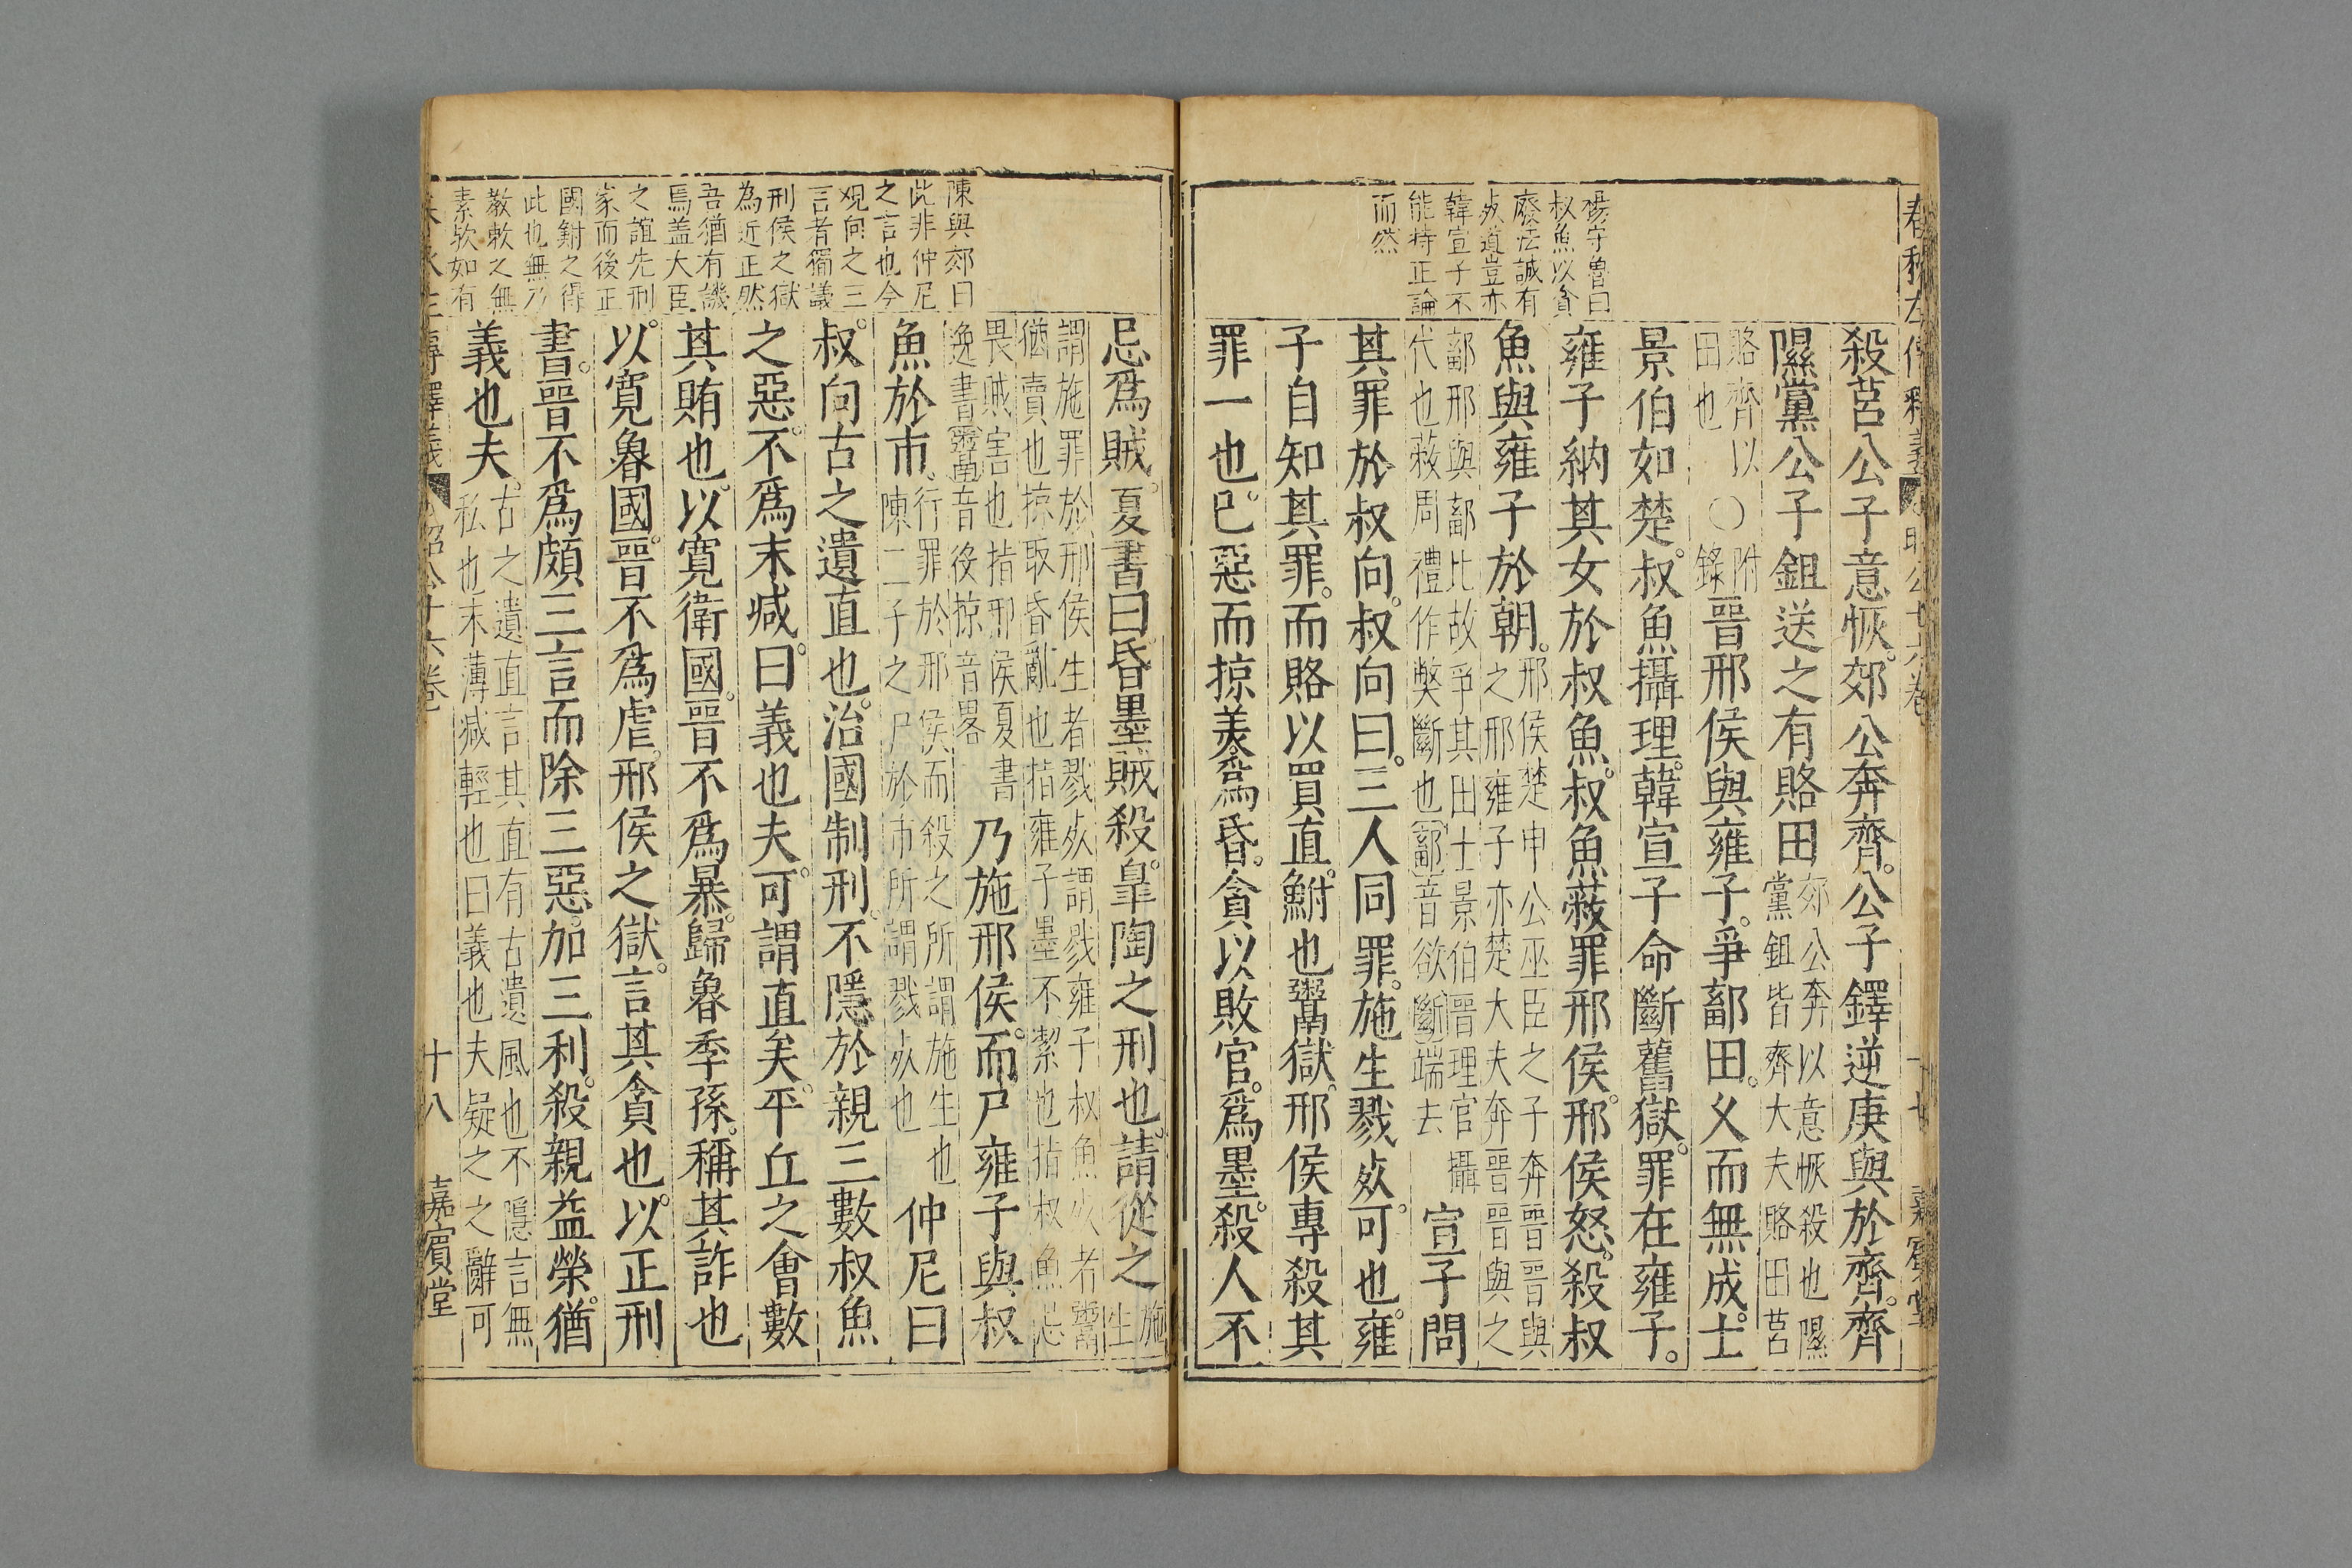 春秋左傳釋義
昭公十六卷
十七
嘉賓堂
楊守魯曰
叔魚以貪
廢法誠有
死道豈亦
韓宣子不
能持正論
而然
殺莒公子意恢。郊公奔齊。公子鐸逆庚與於齊。齊
隰黨公子鉏送之有賂田郊公奔以意恢殺也隰
黨鉏皆齊大夫賂田莒
賂齊以
田也
○附
錄晉邢侯與雍子。爭鄐田。久而無成。士
景伯如楚。叔魚攝理。韓宣子命斷舊獄。罪在雍子。
雍子納其女於叔魚。叔魚蔽罪邢侯。邢侯怒。殺叔
魚與雍子於朝。邢侯楚申公巫臣之子奔晉晉與
之邢雍子亦楚大夫奔晉晉與之
鄐邢與鄐比故爭其田士景伯晉理官攝
代也蔽周禮作弊斷也鄐音欲斷端去
宣子問
其罪於叔向。叔向曰。三人同罪。施生戮死。可也。雍
子自知其罪。而賂以買直。鮒也鬻獄。邢侯專殺其
罪一也。巳惡而掠美爲昏。貪以敗官。爲墨。殺人不
陳與郊曰
此非仲尼
之言也今
觀向之三
言者獨議
刑侯之獄
為近正然
吾猶有譏
焉盖大臣
之誼先刑
家而後正
國鮒之得
此也無乃
教敕之無
素歟如有
忌爲賊。夏書曰昏墨賊殺。臯陶之刑也。請從之施
生
謂施罪於邢侯生者戮死謂戮雍子叔魚死者鬻
猶賣也掠取昏亂也指雍子墨不潔也指叔魚忌
畏賊害也指邢侯夏書
逸書鬻音後掠音畧
乃施邢侯。而尸雍子與叔
魚於市。行罪於邢侯而殺之所謂施生也
陳二子之尸於市所謂戮死也
仲尼曰
叔。向古之遺直也。治國制刑。不隱於親三數叔魚
之惡。不爲末減。曰義也夫。可謂直矣。平丘之會數
其賄也。以寬衛國。晉不爲暴。歸魯季孫。稱其詐也
以。寬魯國。晉不爲虐。邢侯之獄。言其貪也。以正刑
書。晉不爲頗三言而除三惡。加三利。殺親益榮。猶
義也夫。古之遺直言其直有古遺風也不隱言無
私也末薄減輕也曰義也夫疑之之辭可
春秋左傳釋義
昭公十六卷
十八
嘉賓堂